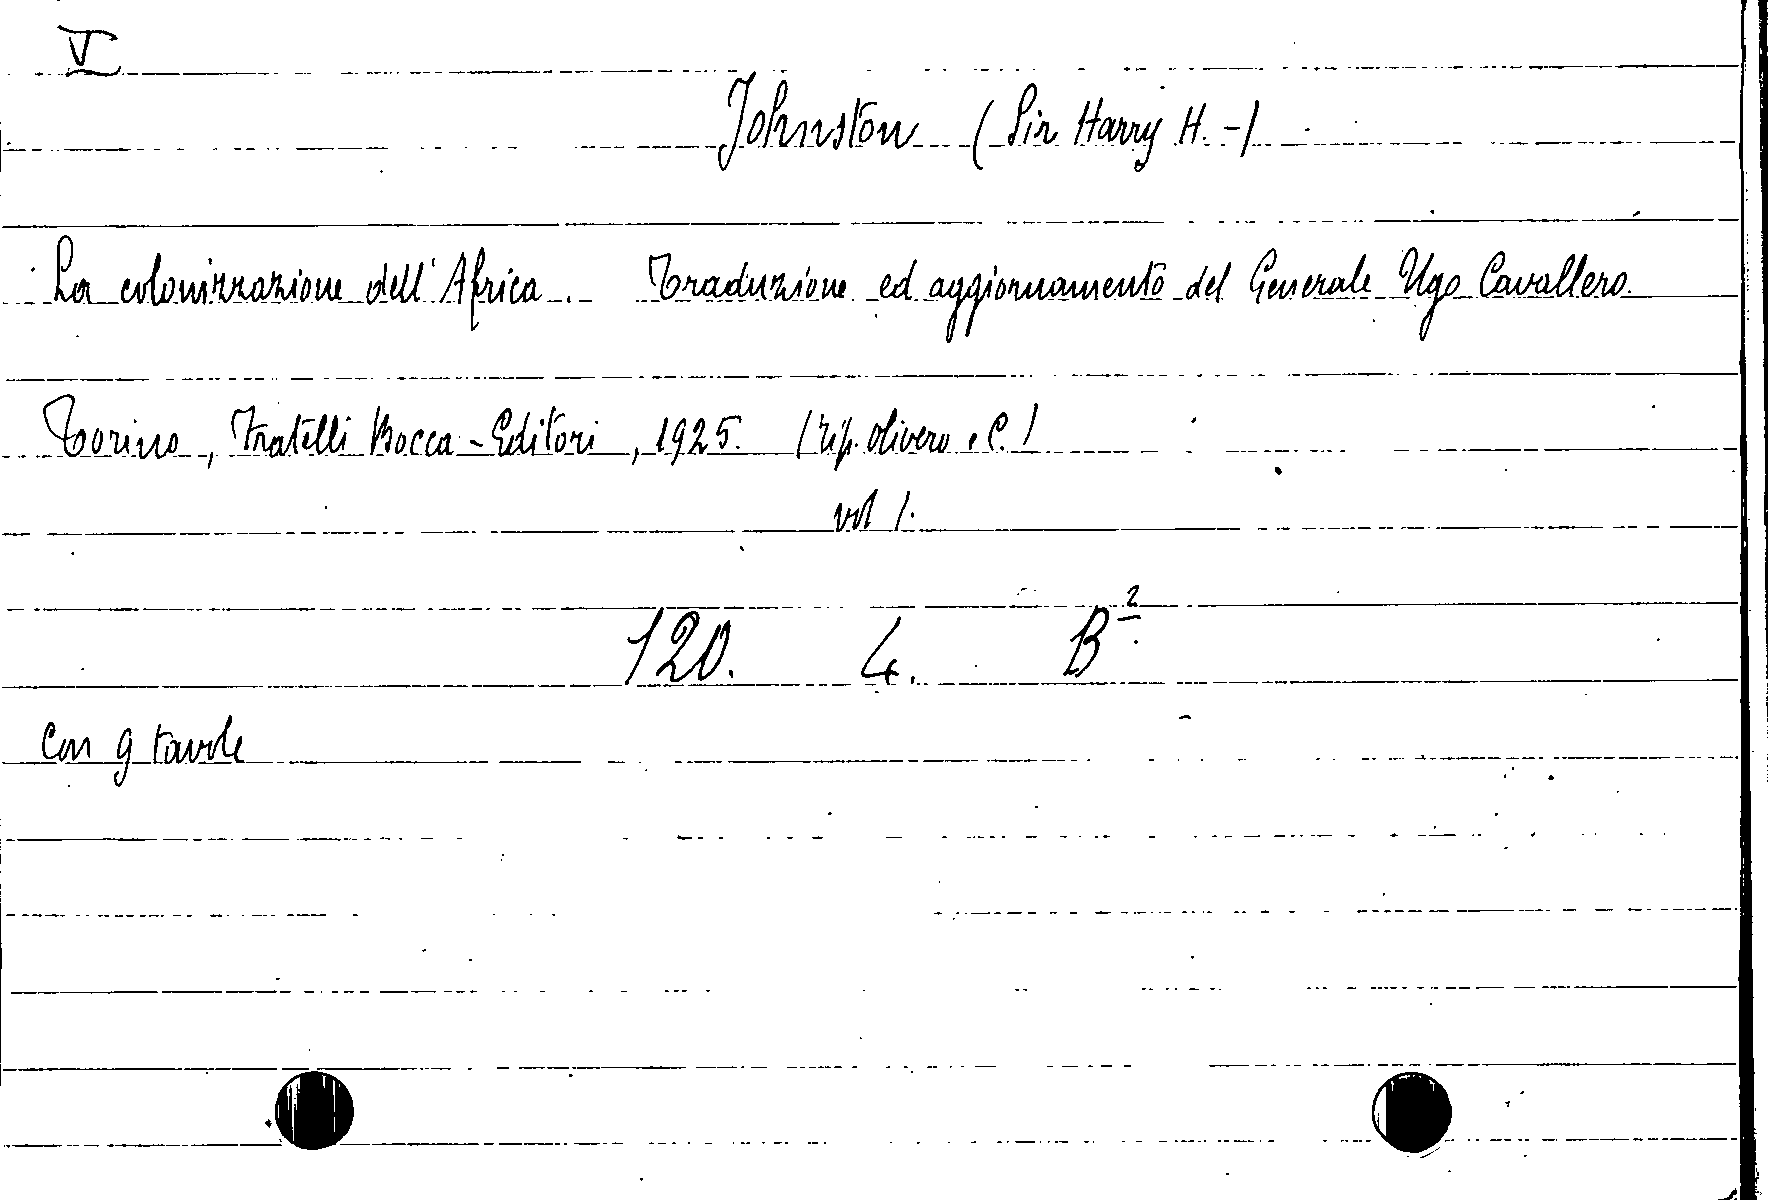 V
Johnston (Sir Harry H. -)
La colonizzazione dell'Africa. Traduzione ed aggiornamento del Generale Ugo Cavallero.
Torino, Fratelli Bocca - Editori, 1925. (Tip. Olivero e C.)
vol 1.
120. 4. B²
Con 9 tavole